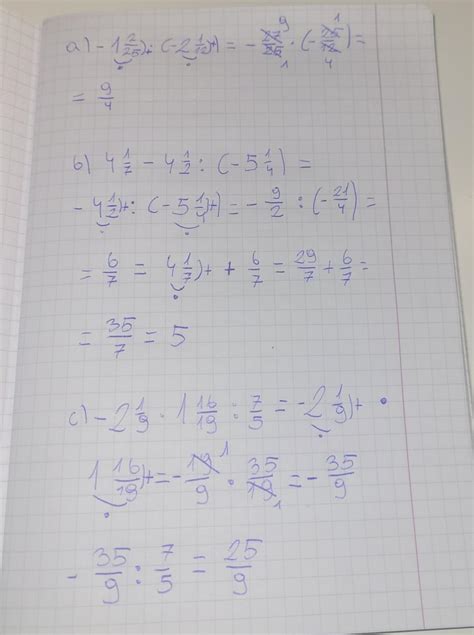 a) -1 2/25)+ · (-2 1/12)+) = - 27/25 · (- 25/12) =
= 9/4
b) 4 1/7 - 4 1/2 : (-5 1/4) =
-4 1/2)+ : (-5 1/4)+) = - 9/2 : (- 21/4) =
= 6/7 = 4 1/7)+ + 6/7 = 29/7 + 6/7 =
= 35/7 = 5
c) -2 1/9 · 1 16/19 : 7/5 = -2 1/9)+ ·
1 16/19)+ = - 19/9 · 35/19 = - 35/9
- 35/9 : 7/5 = 25/9